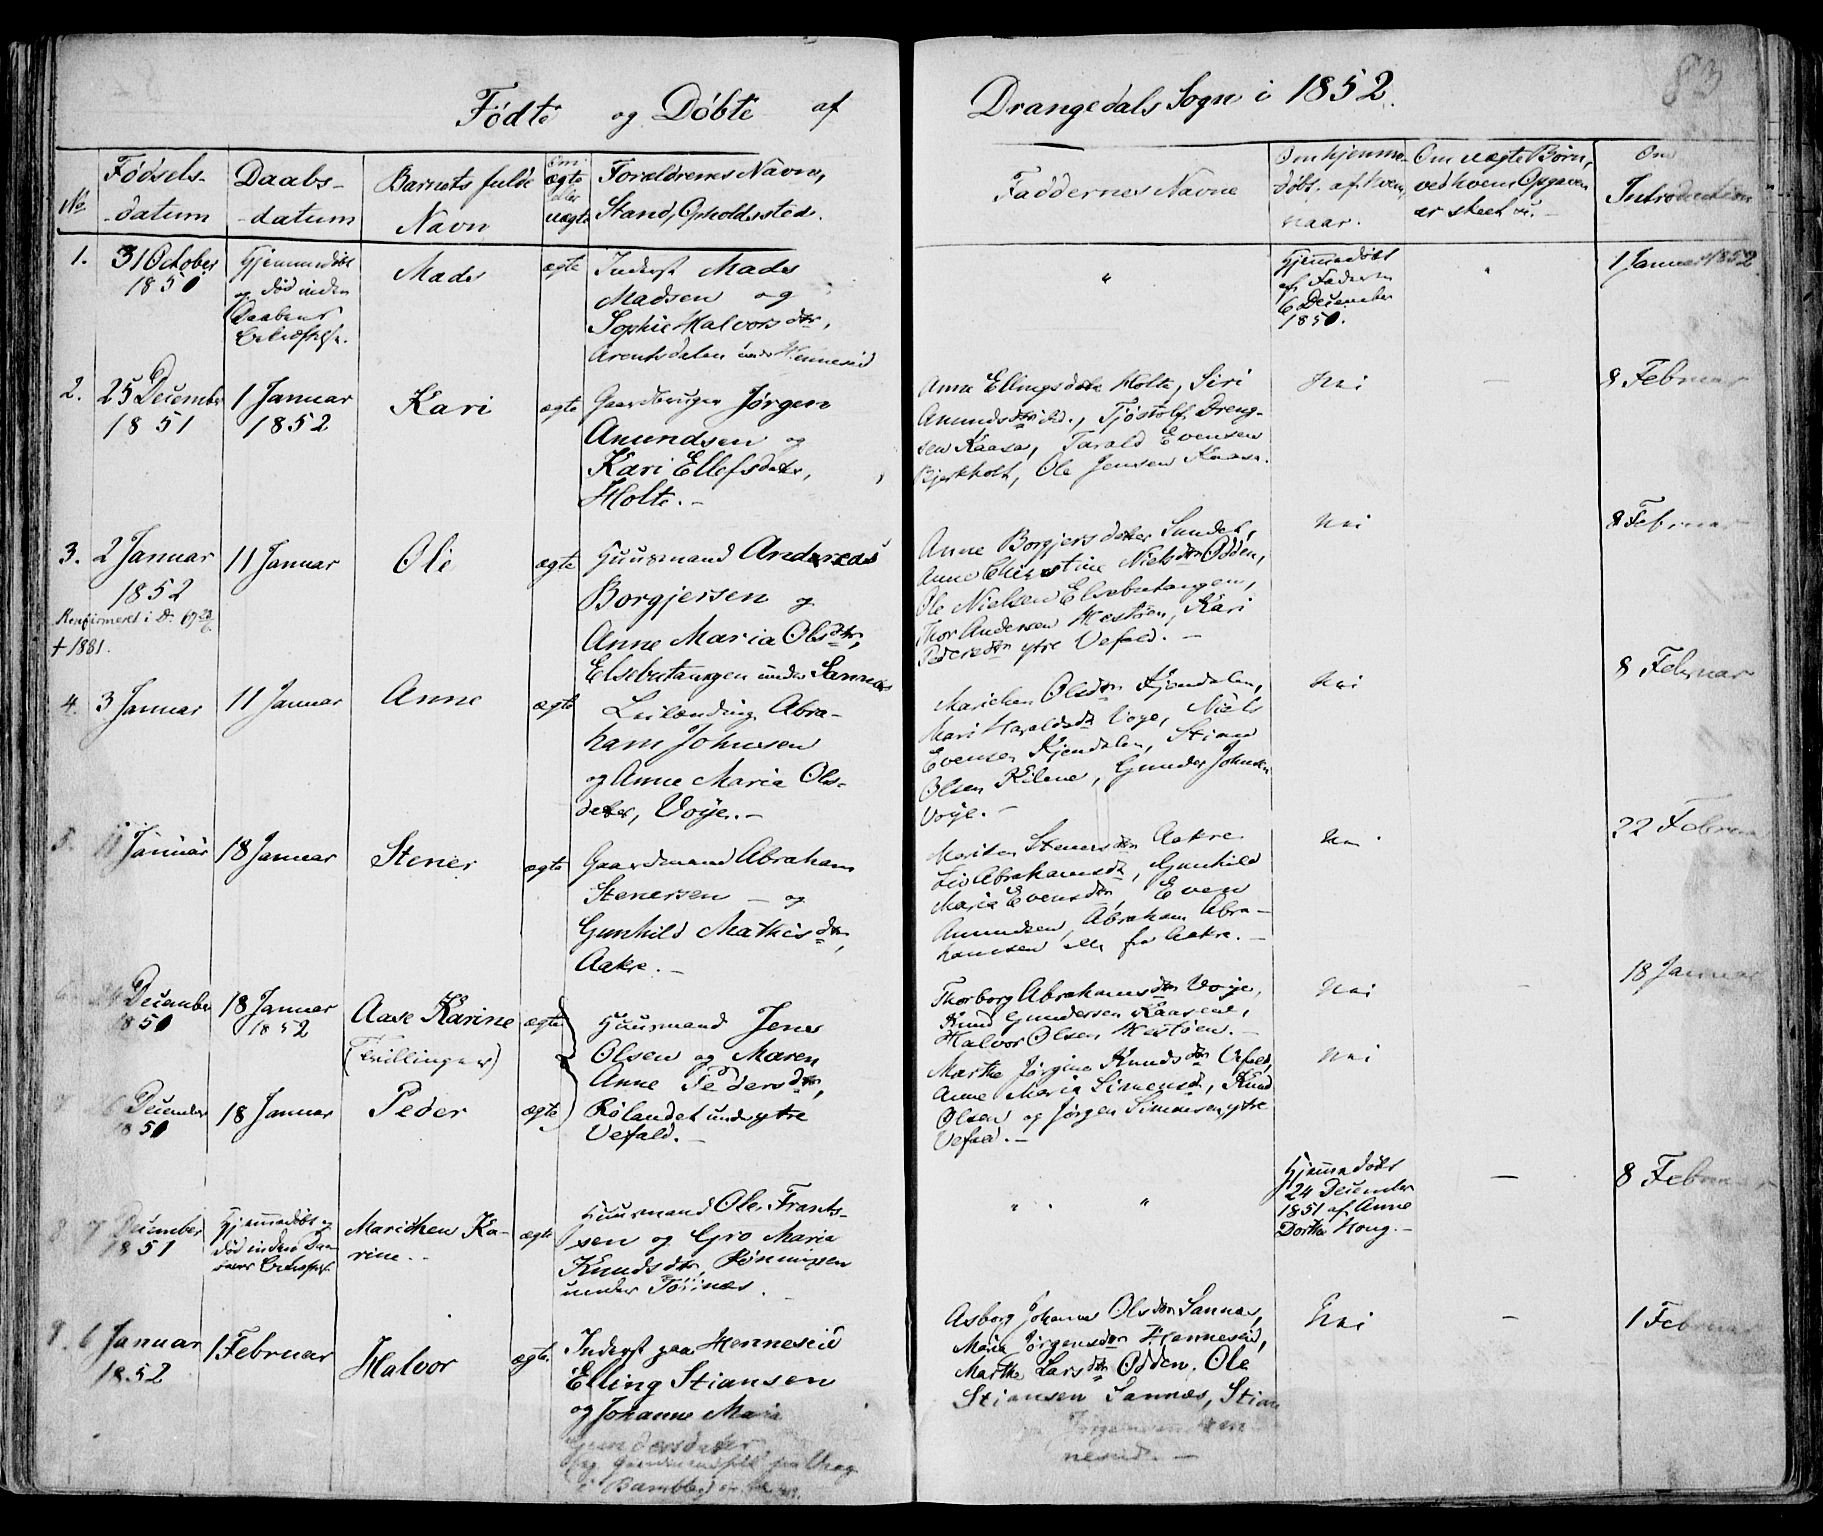 Fødte og Døbte af
Drangedals Sogn i 1852.
83
No
Fødsels-
-datum
Daabs-
-datum
Barnets fulde
Navn
Om
ægte
eller
uægte
Forældrenes Navn,
Stand, Opholdssted.
Faddernes Navne
Om hjemme-
døbt, af hvem,
naar.
Om uægte Børn,
ved hvem Opgaven
er skeet
Om
Introduction
1.
31 October
1851
Hjemmedøbt
og død inden
Daabens
Mads
ægte
Inderst Mads
Madsen og
Sophie Halvorsdtr,
Arentsdalen under Henneseid
"
Hjemmedøbt
af Faderen
6 December
1851.
"
1 Januar 1852
2.
25 December
1851
1 Januar
1852
Kari
ægte
Gaardbruger Jørgen
Anundsen og
Kari Ellefsdatter,
Holte. -
Anne Ellingsdatter Holte, Siri
Anundsdtr ibd., Tjøstolf Dreng-
sen Kaasa, Tarald Evensen
Bjerkholt, Ole Jensen Kaasa.
Nei
-
8 Februar
3.
2 Januar
1852
Konfirmeret i D. 67
† 1881.
11 Januar
Ole
ægte
Huusmand Andreas
Borgjersen og
Anne Maria Olsdtr,
Elsebutangen under Sannæs
Anne Borgjersdatter Sundet,
Anne Christine Nielsdtr Odden,
Ole Nielsen Elsebutangen,
Thor Andersen Hestøen, Kari
Pedersdtr ytre Vefald. -
Nei
8 Februar
4.
3 Januar
11 Januar
Anne
ægte
Leilænding Abra-
ham Johnsen
og Anne Maria Ols-
datter, Voje. -
Marichen Olsdtr Kjendalen,
Mari Haraldsdtr Voje, Niels
Evensen Kjendalen, Stian
Olsen Kilene, Gunder Johnsen
Voje. -
Nei
8 Februar
5.
11 Januar
18 Januar
Stener
ægte
Gaardmand Abraham
Stenersen - og
Gunhild Mathisdtr,
Aakre. -
Mariken Stenersdtr Aakre
Liv Abrahamsdtr, Gunhild
Maria Evensdtr, Even
Anundsen, Abraham Abra-
hamsen alle fra Aakre. -
Nei
22 Februar
6.
December
1851
18 Januar
1852
Aase Karine
(Tvillinger)
ægte
Huusmand Jens
Olsen og Maren
Anne Pedersdtr,
Rølandet under ytre
Vefald. -
Thorborg Abrahamsdtr Voje,
Knud Gundersen Kaasene,
Halvor Olsen Hestøen. -
Nei
-
18 Januar
7
December
1851
18 Januar
Peder
ægte
Marthe Jørgine Knudsdtr Vefald,
Anne Maria Simensdtr, Knud
Olsen og Jørgen Simensen ytre
Vefald. -
Nei
8
7 December
1851
Hjemmedøbt og
død inden Daa-
Marichen Ka-
rine. -
ægte
Huusmand Ole Frants-
sen og Gro Maria
Knudsdtr, Rønningen
under Tørnæs.
" "
Hjemmedøbt
24 December
1851 af Anne
Dorthe Houg. -
-
8 Februar
9.
6 Januar
1852
1 Februar
Halvor
ægte
Inderst paa Henneseid
Elling Stiansen
og Johanne Maria
Gundersdatter
i Bamble
Asborg Johanne Olsdtr Sannæs,
Maria Jørgensdtr Henneseid,
Marthe Larsdtr Odden, Ole
Stiansen Sannæs, Stian
Jørgensen Hen-
neseid. -
Nei
-
1 Februar